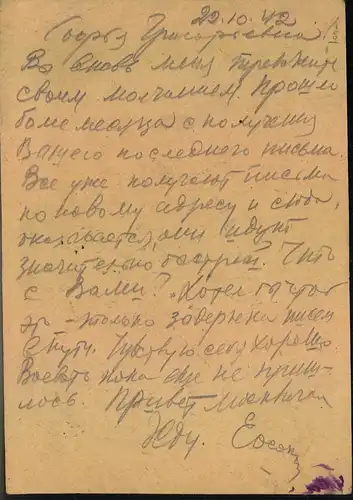 22.10.42
Софья Григорьевна.
Вы вновь меня тревожите
своим молчанием. Прошло
более месяца с получения
Вашего последнего письма.
Все уже получают письма
по новому адресу и сюда,
оказывается, они идут
значительно быстрей. Что
с Вами? Хотел бы чтоб
это - только задержка писем
в пути. Чувствую себя хорошо
Воевать пока еще не приш-
лось. Привет
Жду.